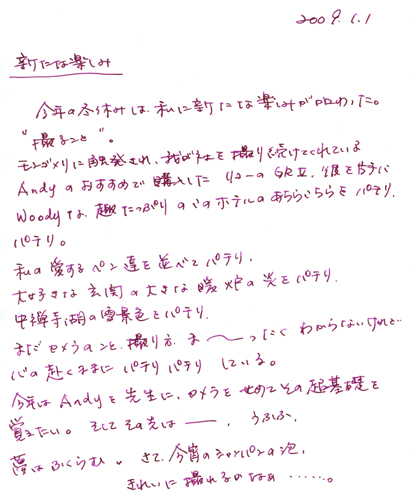 2009.1.1
新たな楽しみ
今年の冬休みは、私に新たな楽しみが加わった。
"撮ること"。
モンゴメリに触発され、我が社を撮り続けてくれている
Andyのおすすめで購入したリコーの、彼を片手に
Woodyな、趣たっぷりのこのホテルのあちらこちらをパチリ、
パチリ。
私の愛するペン達を並べてパチリ、
大好きな玄関の大きな暖炉の炎をパチリ、
中禅寺湖の雪景色をパチリ、
まだカメラのこと、撮り方、まーったくわからないけれど…
心の赴くままにパチリパチリしている。
今年はAndyを先生に、カメラをせめてその超基礎を
覚えたい。そしてその先は――、うふふ、
夢はふくらむ。さて、今宵のシャンパンの泡、
きれいに撮れるのなぁ……。